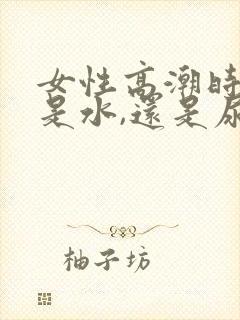 女性高潮時
是水,還是尿
柚子坊